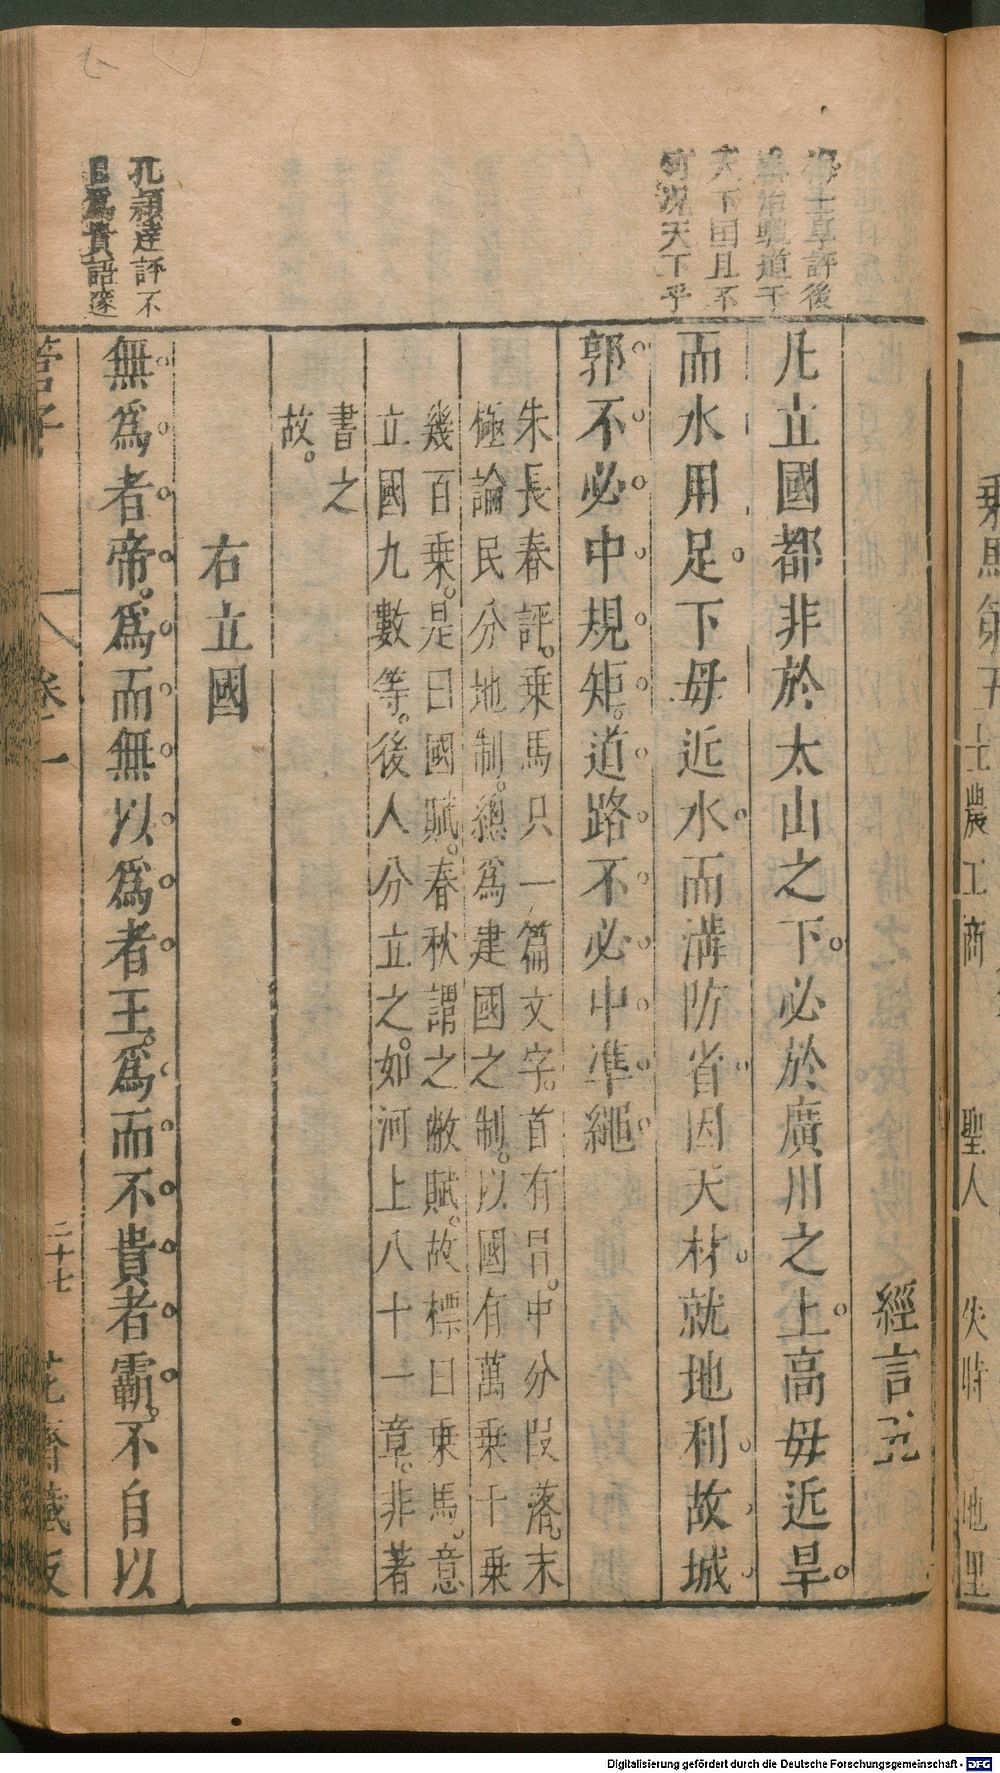 評後
治興道于
天下國且不
何况天下乎
經言五
凡立國都非於太山之下必於廣川之上高毋近旱
而水用足下毋近水而溝防省因天材就地利故城
郭不必中規矩道路不必中準繩
朱長春評乗馬只一篇文字首有冒中分段落末
極論民分地制總爲建國之制以國有萬乗千乗
幾百乗是曰國賦春秋謂之敝賦故標曰乗馬意
立國九數等後人分立之如河上八十一章非著
書之
故
右立國
孔穎達評不
且爲貴語邃
無爲者帝爲而無以爲者王爲而不貴者霸不自以
管子
卷一
二十七
花齋藏板
乗馬第五
士農工商
聖人
失時
地里
Digitalisierung gefördert durch die Deutsche Forschungsgemeinschaft - DFG